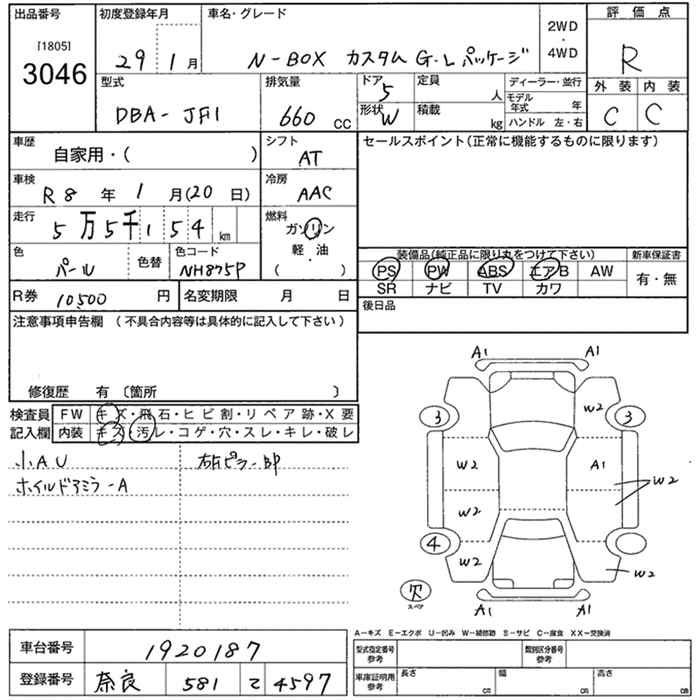 出品番号 初度登録年月 車名・グレード 2WD・4WD 評価点
[1805]
3046
29 1月 N-BOX カスタム G・Lパッケージ R
型式 排気量 ドア 5 定員 人 ディーラー・並行 外装 内装
DBA-JF1 660 CC 形状 W 積載 kg モデル年式 年 C C
ハンドル 左・右
車歴 自家用・( ) シフト AT セールスポイント(正常に機能するものに限ります)
車検 R8年 1月(20日) 冷房 AAC
走行 5万5千154 km 燃料 ガソリン
軽・油
( )
色 パール 色替 色コード NH875P
装備品(純正品に限り丸をつけて下さい) 新車保証書
PS PW ABS エアB AW 有・無
SR ナビ TV カワ
R券 10500円 名変期限 月 日 後日品
注意事項申告欄 (不具合内容等は具体的に記入して下さい)
修復歴 有 〔箇所 〕
検査員 FW キズ・飛石・ヒビ割・リペア跡・X要
記入欄 内装 キズ・汚レ・コゲ・穴・スレ・キレ・破レ
小AU 右Fピラー-BP
ホイルドアミラーA
A1 A1
W2
3 3
W2 A1
W2
W2
4
W2 W2
欠
スペア
A1 A1
A-キズ E-エクボ U-凹み W-補修跡 S-サビ C-腐食 XX-交換済
車台番号 1920187 型式指定番号 参考 類別区分番号 参考
登録番号 奈良 581 て 4597 車庫証明用 参考 長さ cm 幅 cm 高さ cm